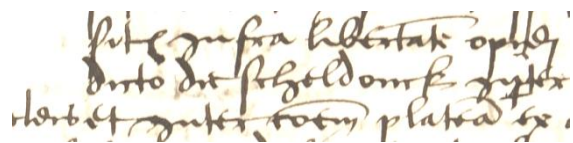 sit infra libertate opidi
dicto die scheldonck inter
et inter coem platea ex